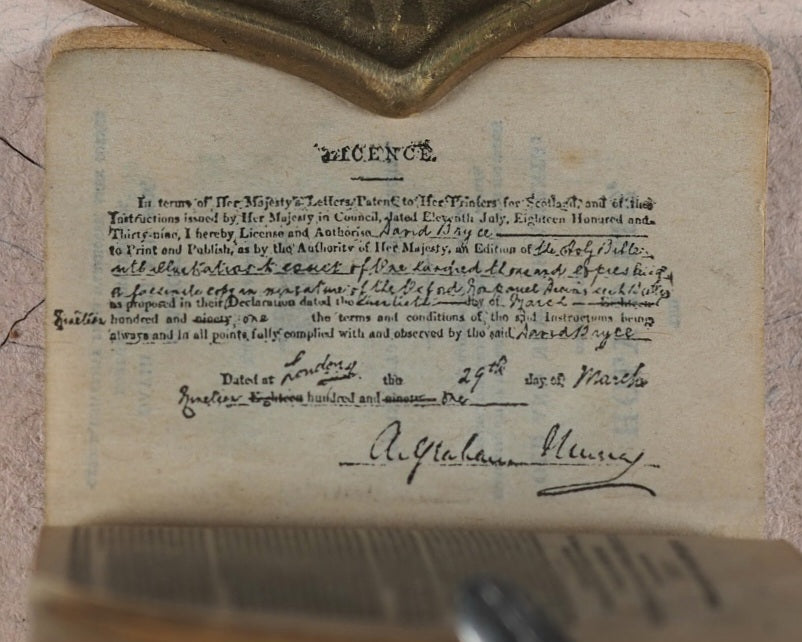 LICENCE.
In terms of Her Majesty's Letters Patent to Her Printers for Scotland, and of the
Instructions issued by Her Majesty in Council, dated Eleventh July, Eighteen Hundred and
Thirty-nine, I hereby License and Authorise David Bryce
to Print and Publish, as by the Authority of Her Majesty, an Edition of the Holy Bible
with illustrations to consist of One hundred thousand copies being
a facsimile copy in miniature of the Oxford Nonpareil
as proposed in their Declaration dated the twentieth day of March Eighteen
Nineteen hundred and ninety one the terms and conditions of the said Instructions being
always and in all points fully complied with and observed by the said David Bryce
Dated at London the 29th day of March
Nineteen Eighteen hundred and ninety one
A. Graham Murray